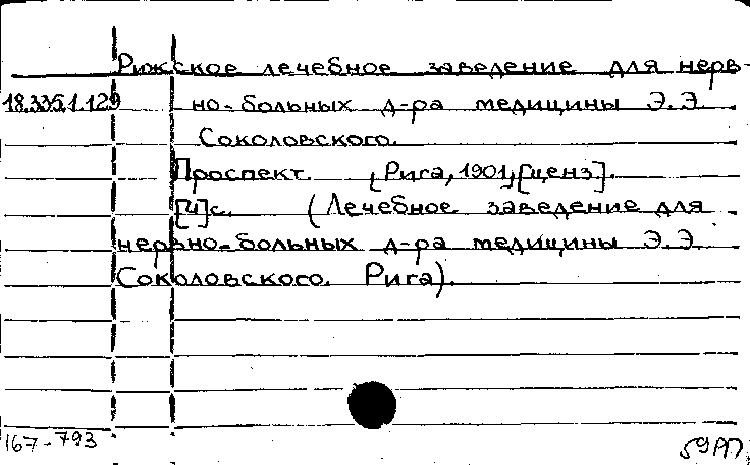 Рижское лечебное заведение для нерв-
18.335.1.129 но-больных д-ра медицины Э.Э.
Соколовского.
Проспект. [Рига, 1901, [ценз].
[4]с. (Лечебное заведение для
нервно-больных д-ра медицины Э.Э.
Соколовского. Рига).
167-793